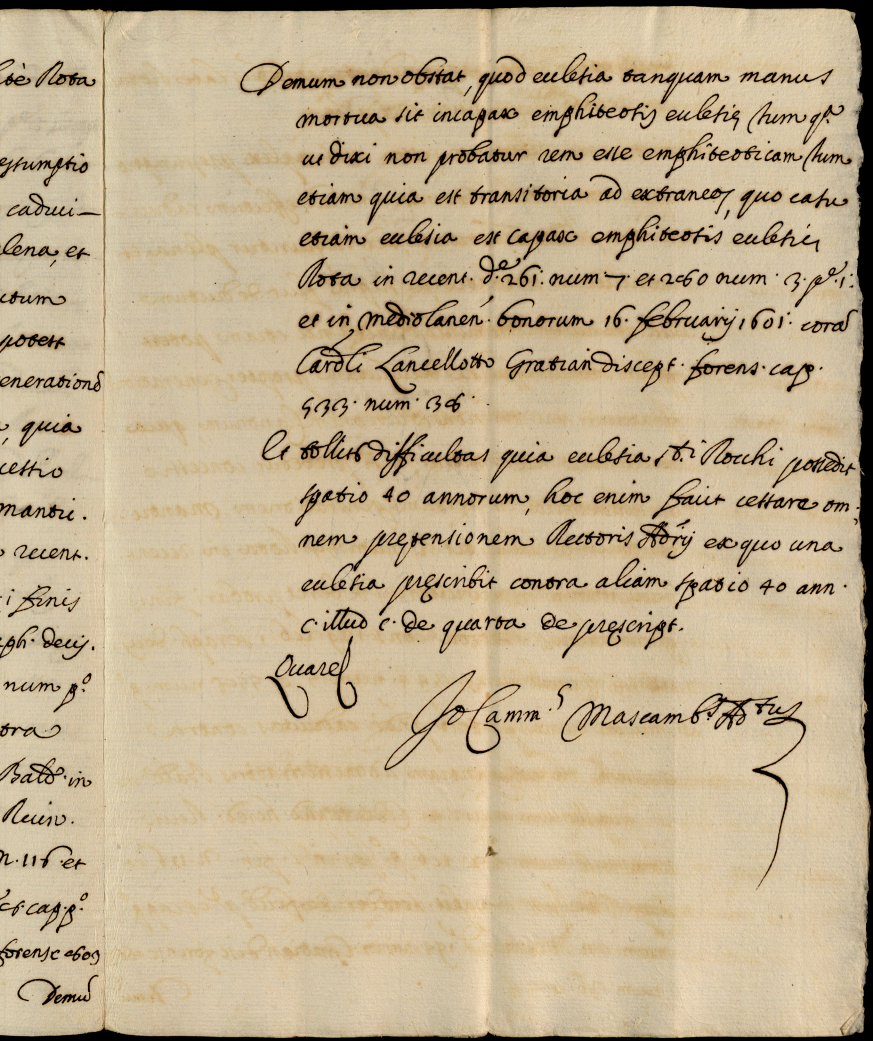 tè Rota
esumptio
caduci-
lena, et
ctum
potest
generatione
, quia
cessio
mantic.
recent.
i finis
ph. decis.
num p.º
tra
Bald. in
Ruin.
n. 116 et
cap. p.º
forens c 609
Demū
Demum non obstat, quod eclesia tanquam manus
mortua sit incapax emphiteotis eclesię, tum q.ª
ut dixi non probatur rem esse emphiteoticam, tum
etiam quia est transitoria ad extraneos, quo casu
etiam eclesia est capax emphiteosis eclesię,
Rota in recent. d.e 261. num 7. et 260 num. 3. p.e 1.
et in mediolanen. bonorum 16. februarij 1601. corā
Car.li Lancellotto Gratian discept. forens. cap.
533. num. 36.
Et tollit.r difficultas quia eclesia s.ti Rocchi possedit
spatio 40 annorum, hoc enim facit cessare om-
nem prętensionem Rectoris ex quo una
eclesia pręscribit contra aliam spatio 40 ann.
c. illud c. de quarta de pręscript.
Quare
Jo Camm.s Mascamb.s